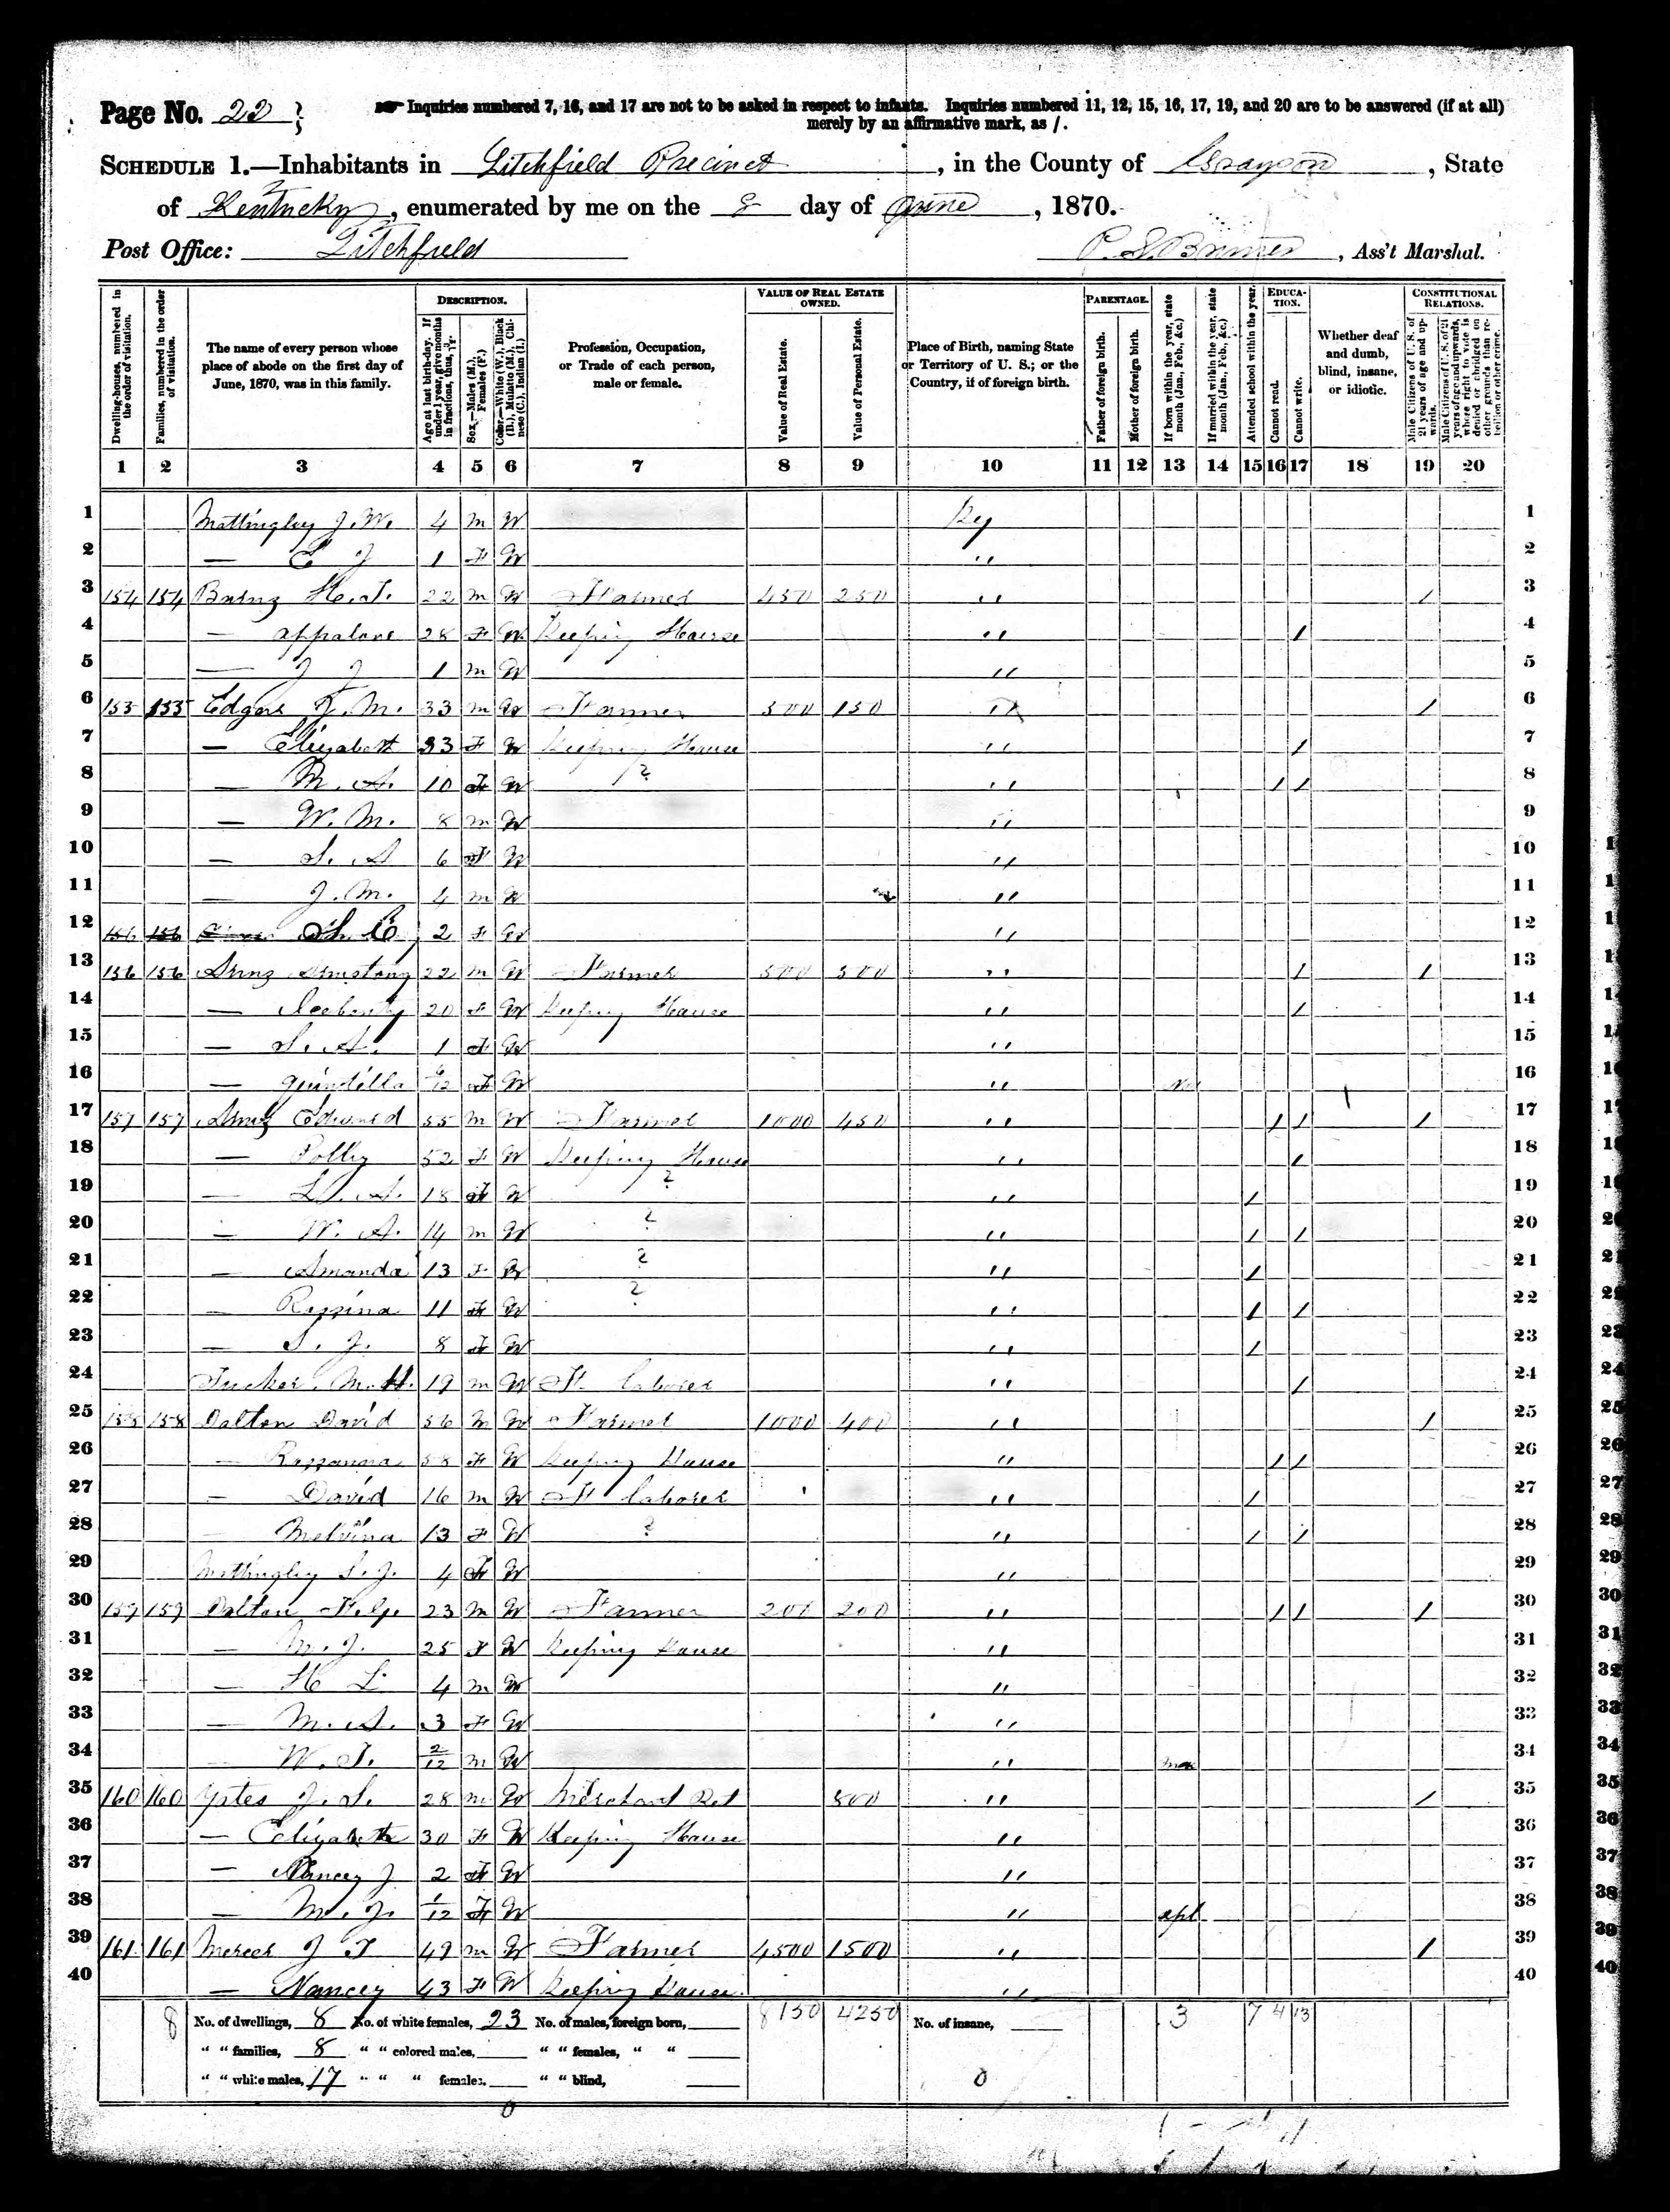 Page No. 22
Inquiries numbered 7, 16, and 17 are not to be asked in respect to infants. Inquiries numbered 11, 12, 15, 16, 17, 19, and 20 are to be answered (if at all)
merely by an affirmative mark, as /.
SCHEDULE 1.—Inhabitants in Litchfield Precinct, in the County of Grayson, State
of Kentucky, enumerated by me on the 8 day of June, 1870.
Post Office: Litchfield
, Ass't Marshal.
Dwelling-houses, numbered in the order of visitation.
Families, numbered in the order of visitation.
The name of every person whose place of abode on the first day of June, 1870, was in this family.
DESCRIPTION.
Age at last birth-day. If under 1 year, give months in fractions, thus,
Sex.—Males (M.), Females (F.)
Color.—White (W.), Black (B.), Mulatto (M.), Chinese (C.), Indian (I.)
Profession, Occupation, or Trade of each person, male or female.
VALUE OF REAL ESTATE OWNED.
Value of Real Estate.
Value of Personal Estate.
Place of Birth, naming State or Territory of U. S.; or the Country, if of foreign birth.
PARENTAGE.
Father of foreign birth.
Mother of foreign birth.
If born within the year, state month (Jan., Feb., &c.)
If married within the year, state month (Jan., Feb., &c.)
Attended school within the year.
EDUCATION.
Cannot read.
Cannot write.
Whether deaf and dumb, blind, insane, or idiotic.
CONSTITUTIONAL RELATIONS.
Male Citizens of U. S. of 21 years of age and upwards.
Male Citizens of U. S. of 21 years of age and upwards, whose right to vote is denied or abridged on other grounds than rebellion or other crime.
1 2 3 4 5 6 7 8 9 10 11 12 13 14 15 16 17 18 19 20
1 Mattingley J. W. 4 m W Ky 1
2 — E J 1 F W " 2
3 154 154 H. T. 22 m W Farmer 450 250 " / 3
4 — appalone 28 F W Keeping House " / 4
5 — J J 1 m W " 5
6 155 155 Edgar J. M. 33 m W Farmer 500 150 " / 6
7 — Elizabeth 33 F W Keeping House " / 7
8 — M. A. 10 F W ? " / / 8
9 — W. M. 8 m W " 9
10 — S. A 6 F W " 10
11 — J. M. 4 m W " 11
12 156 156 2 F W " 12
13 156 156 22 m W Farmer 500 300 " / / 13
14 — 20 F W Keeping House " / 14
15 — S. A. 1 F W " 15
16 — Quintilla F W " 16
17 157 157 Edward 55 m W Farmer 1000 450 " / / / 17
18 — Polly 52 F W Keeping House " / 18
19 — L. A. 18 F W ? " / 19
20 — W. A. 14 m W ? " / / 20
21 — Amanda 13 F W ? " / 21
22 — Rozzina 11 F W ? " / / 22
23 — S. J. 8 F W " / 23
24 Tucker M. H. 19 m W F. laborer " / 24
25 158 158 Dalton David 56 m W Farmer 1000 400 " / 25
26 — Rozzanna 58 F W Keeping House " / / 26
27 — David 16 m W F laborer " / 27
28 — Melvina 13 F W ? " / / 28
29 Mattingley S. J. 4 F W " 29
30 159 159 Dalton 23 m W Farmer 200 200 " / / / 30
31 — M. J. 25 F W Keeping House " 31
32 — H L 4 m W " 32
33 — M. A. 3 F W " 33
34 — W. T. 2/12 m W " mar 34
35 160 160 Yates J. S. 28 m W Merchant Ret 800 " / 35
36 — Elizabeth 30 F W Keeping House " 36
37 — Nancy J 2 F W " 37
38 — M. J. 1/12 F W " apl 38
39 161 161 Mercer J T 49 m W Farmer 4500 1500 " / 39
40 — Nancey 43 F W Keeping House " 40
8 No. of dwellings, 8 No. of white females, 23 No. of males, foreign born, 8150 4250 No. of insane, 3 7 4 13
" " families, 8 " " colored males, " " females, " "
" " white males, 17 " " " females, " " blind, 0
0